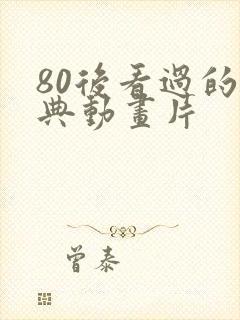 80後看過的
典動畫片
曾泰